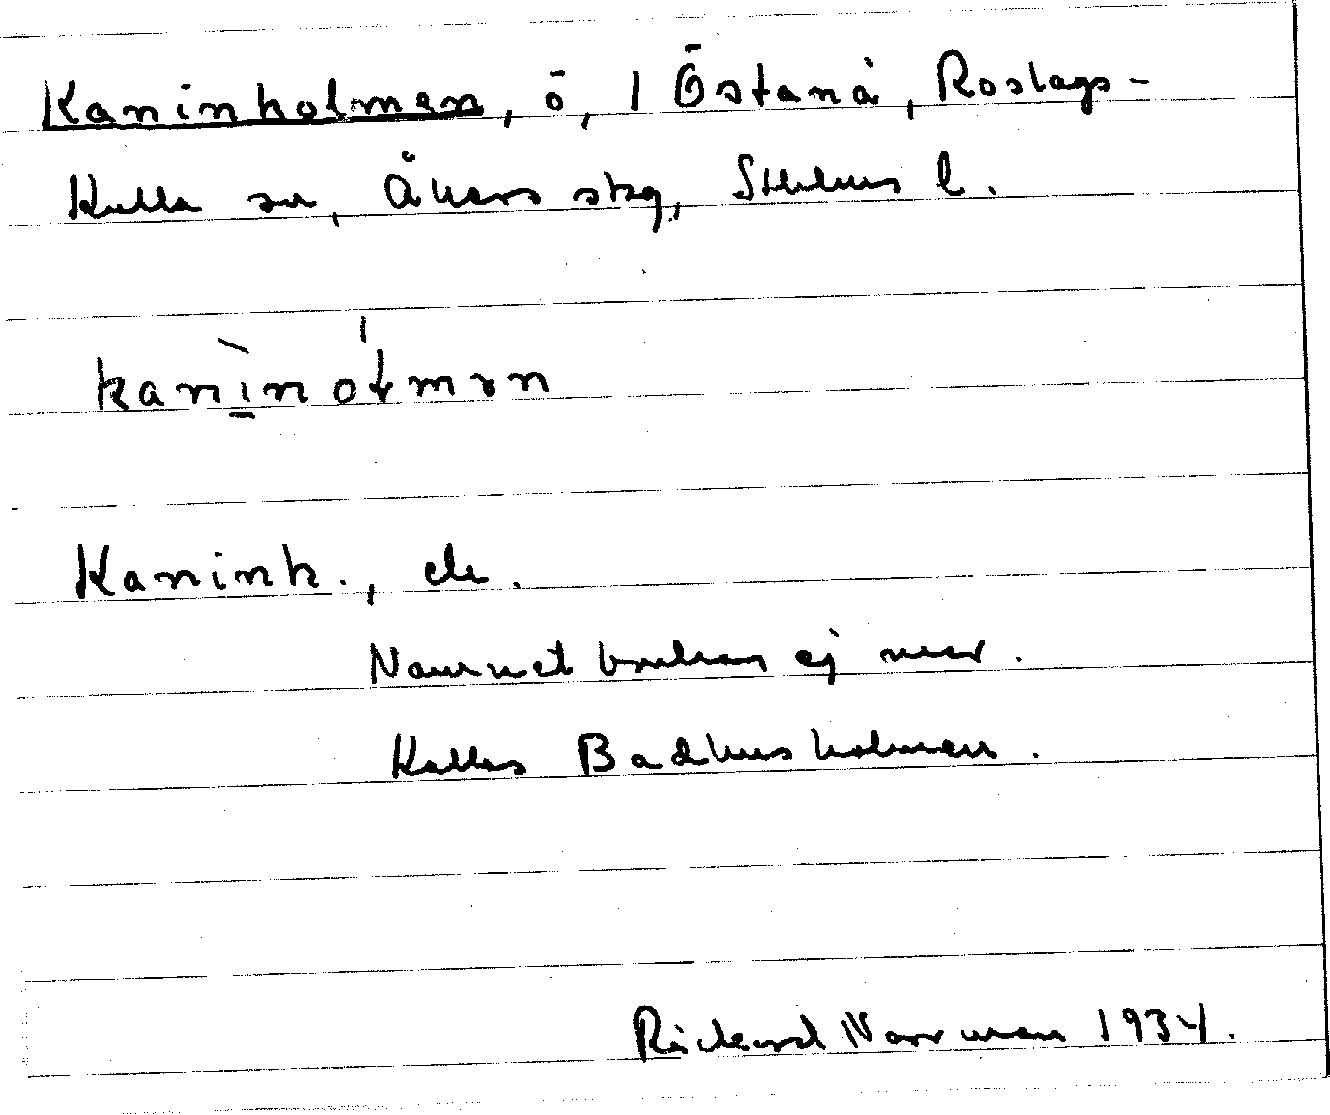 Kaninholmen, ö, 1 Östanå, Roslags-
Kulla sn, Åkers skg, Sthlms l.
kanìnóɫmən
Kaninh., ek.
Namnet brukas ej mer.
Kallas Badhusholmen.
Rickard Norrman 1934.